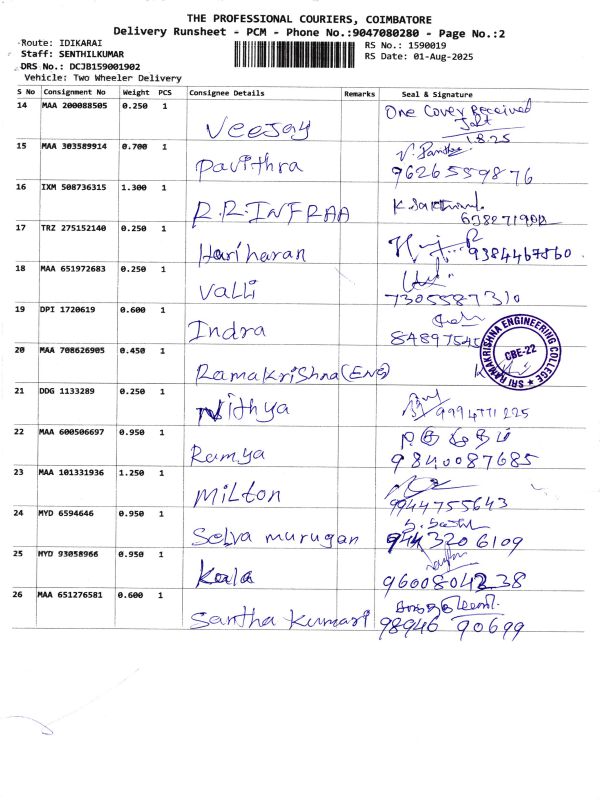 THE PROFESSIONAL COURIERS, COIMBATORE
Delivery Runsheet - PCM - Phone No.:9047080280 - Page No.:2
Route: IDIKARAI
RS No.: 1590019
Staff: SENTHILKUMAR
RS Date: 01-Aug-2025
DRS No.: DCJB159001902
Vehicle: Two Wheeler Delivery
S No Consignment No Weight PCS Consignee Details Remarks Seal & Signature
14 MAA 200088505 0.250 1 Veejay One Cover Received
1.8.25
15 MAA 303589914 0.700 1 Pavithra
9626559876
16 IXM 508736315 1.300 1 R.R.INFRAA
17 TRZ 275152140 0.250 1 Hariharan 9384467560.
18 MAA 651972683 0.250 1 Valli
7305587310
19 DPI 1720619 0.600 1 Indra
20 MAA 708626905 0.450 1 Ramakrishna (ENG)
SRI RAMAKRISHNA ENGINEERING COLLEGE
CBE-22
21 DDG 1133289 0.250 1 Nithya 9994771225
22 MAA 600506697 0.950 1 Ramya
9840087685
23 MAA 101331936 1.250 1 Milton
9944755643
24 MYD 6594646 0.950 1 Selva murugan
9443206109
25 MYD 93058966 0.950 1 Kala
26 MAA 651276581 0.600 1 Santha Kumari
98946 90699